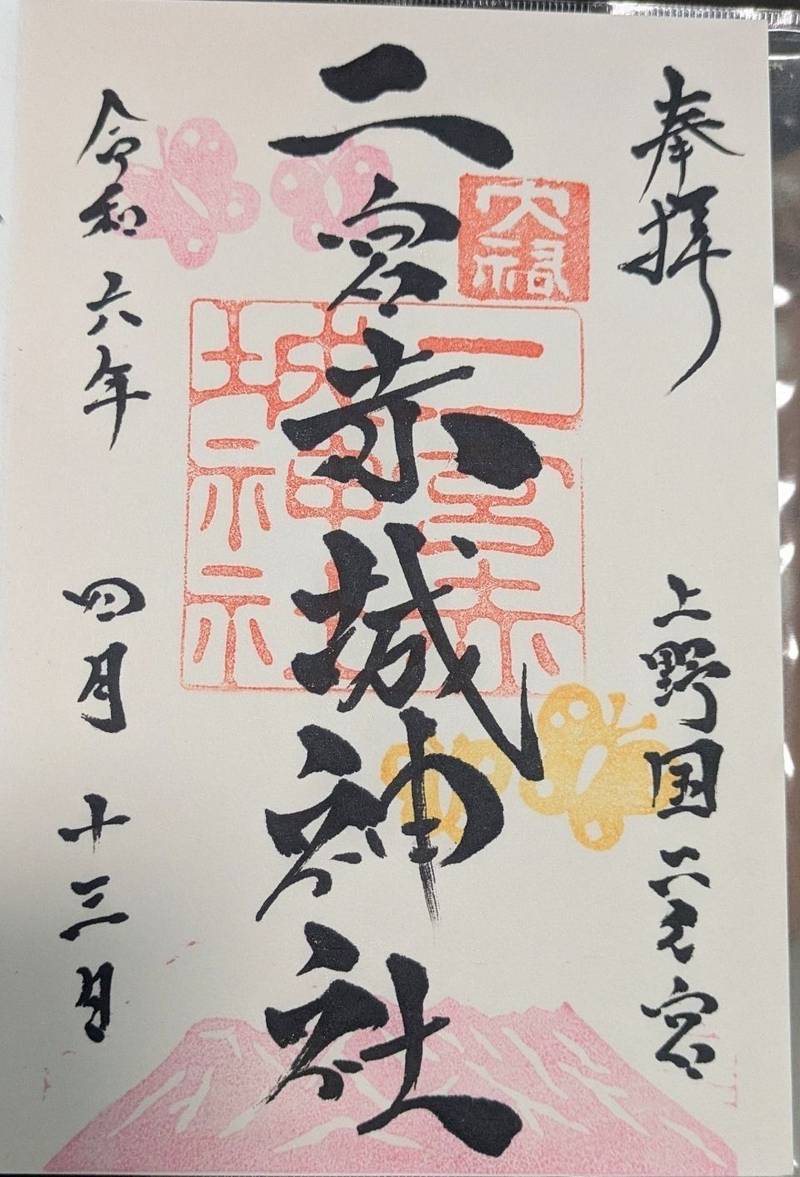 奉拝
上野国二之宮
二宮赤城神社
二宮赤
城神社
令和六年四月十三日